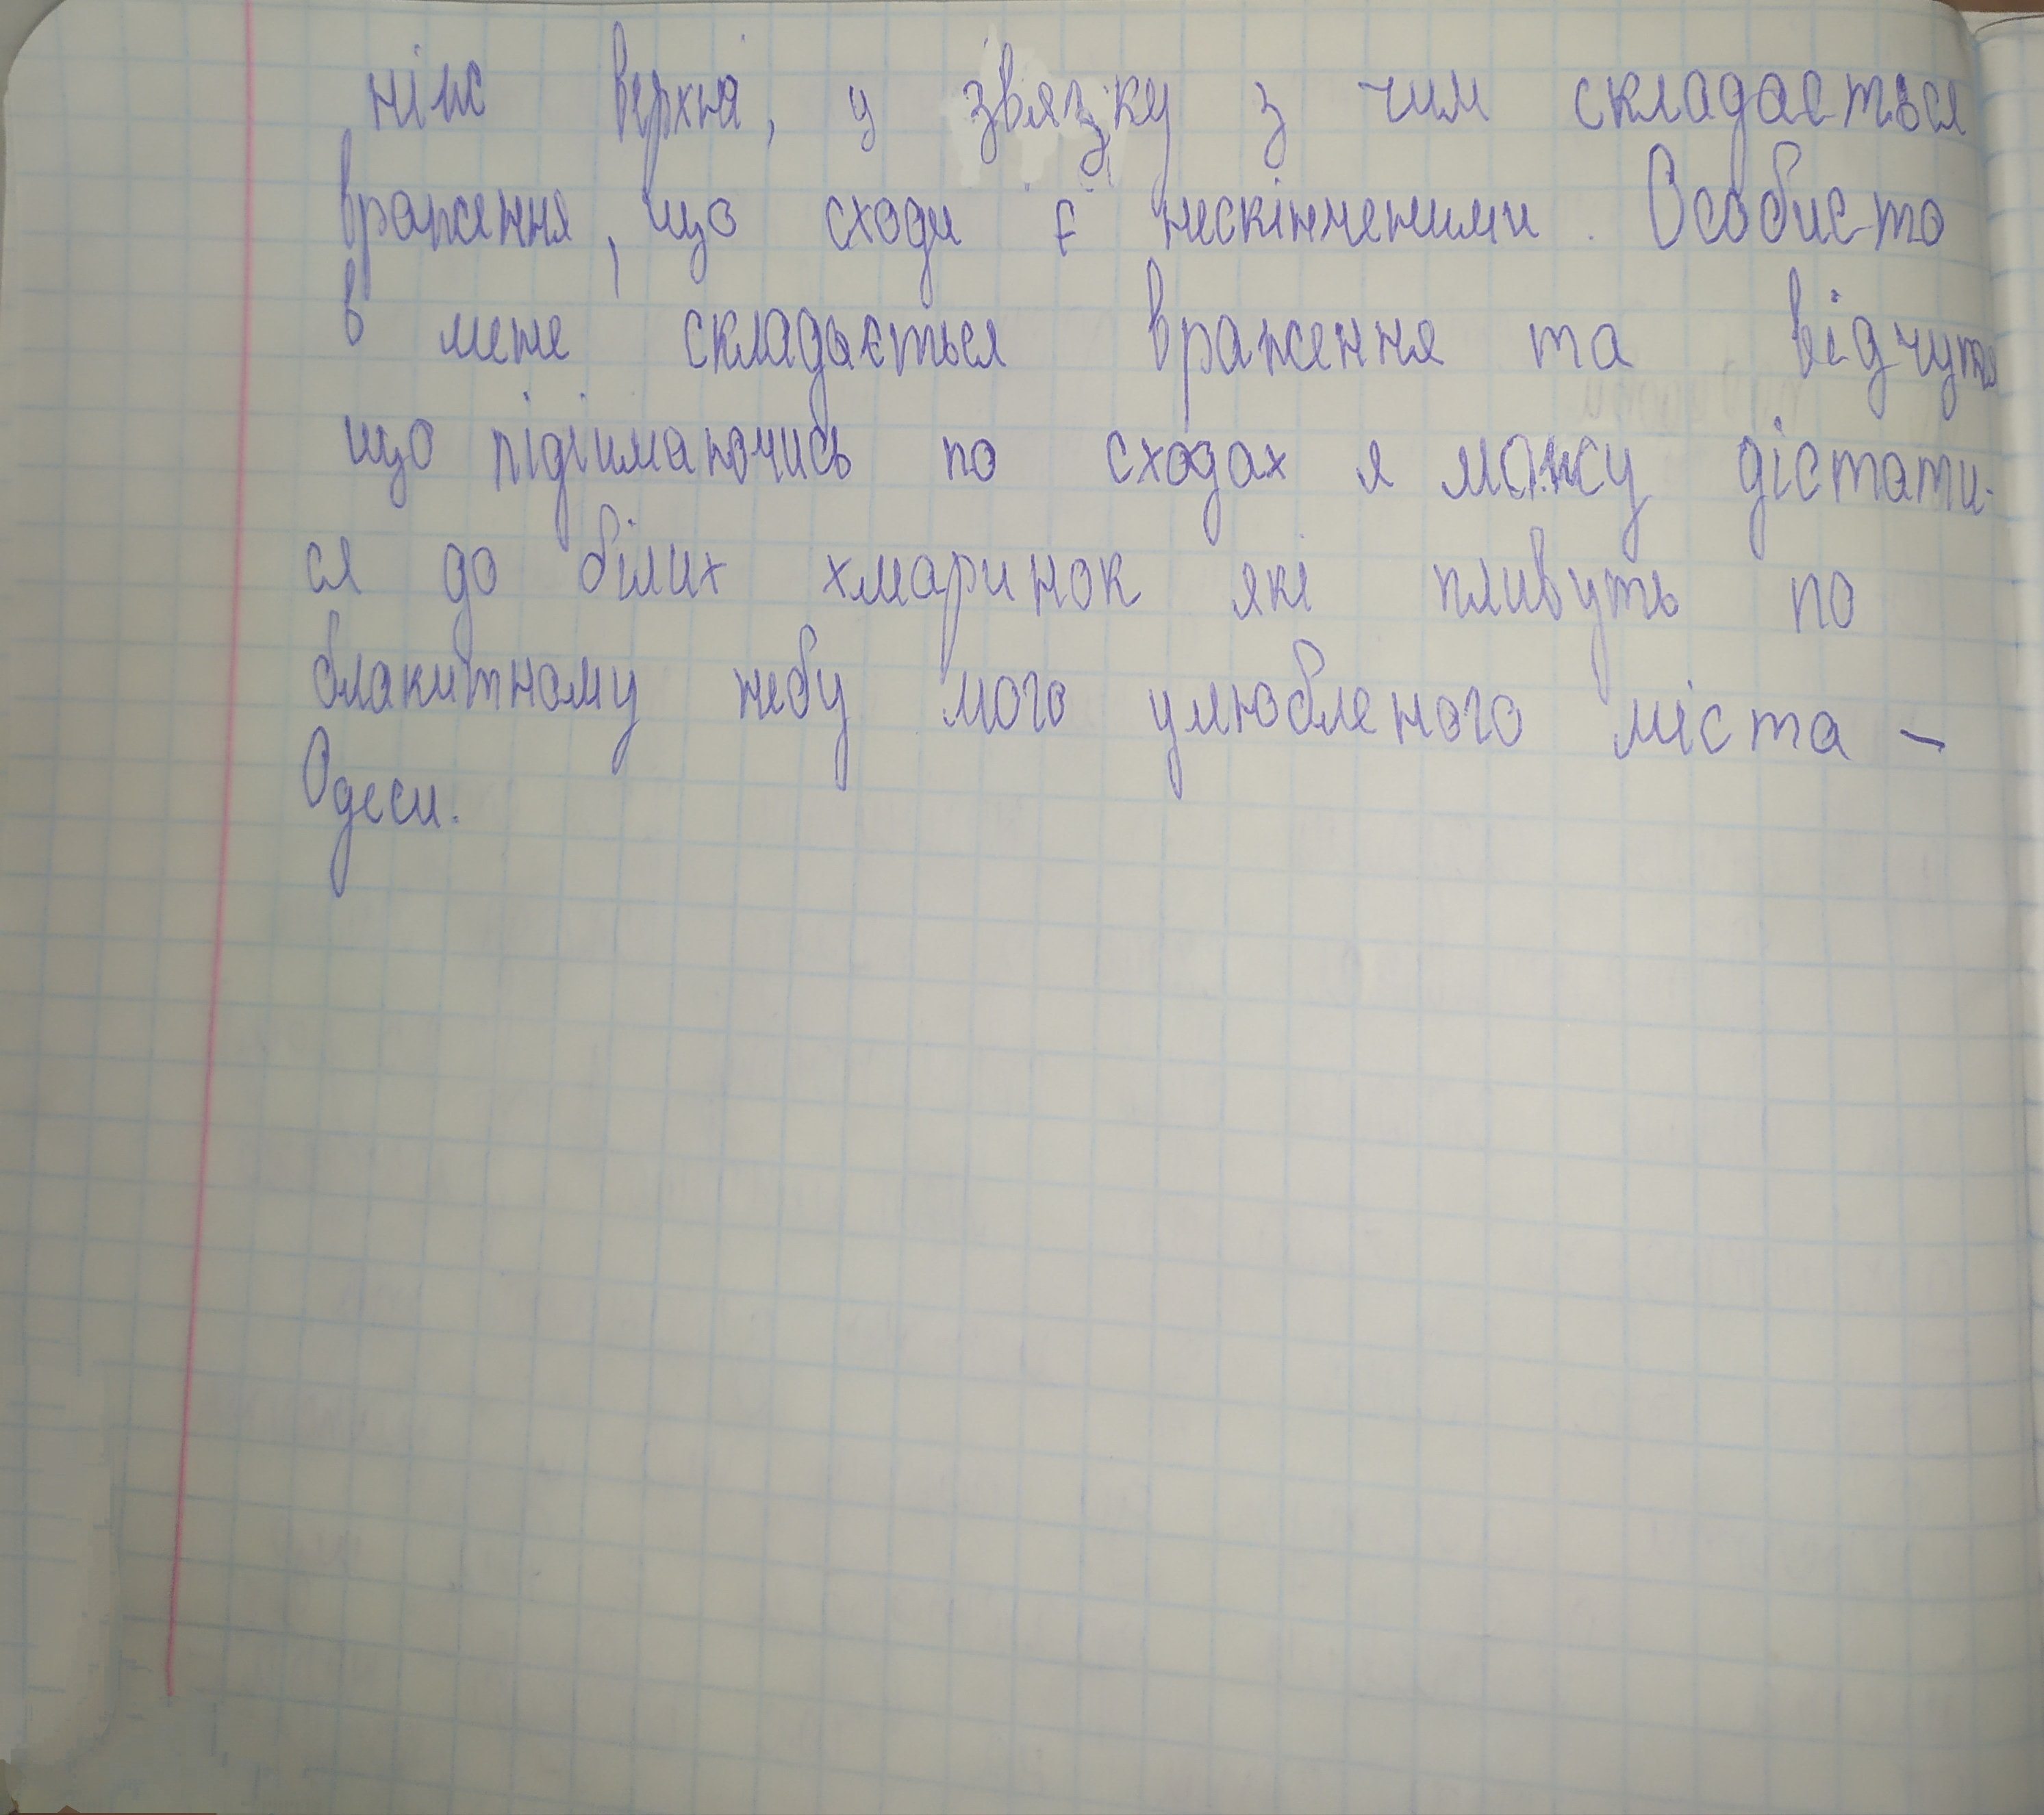 ніж верхня, у звязку з чим складається
враження, що сходи є нескінченими. Особисто
в мене складається враження та відчуття
що підіймаючись по сходах я можу дістати-
ся до білих хмаринок які пливуть по
блакитному небу мого улюбленого міста -
Одеси.